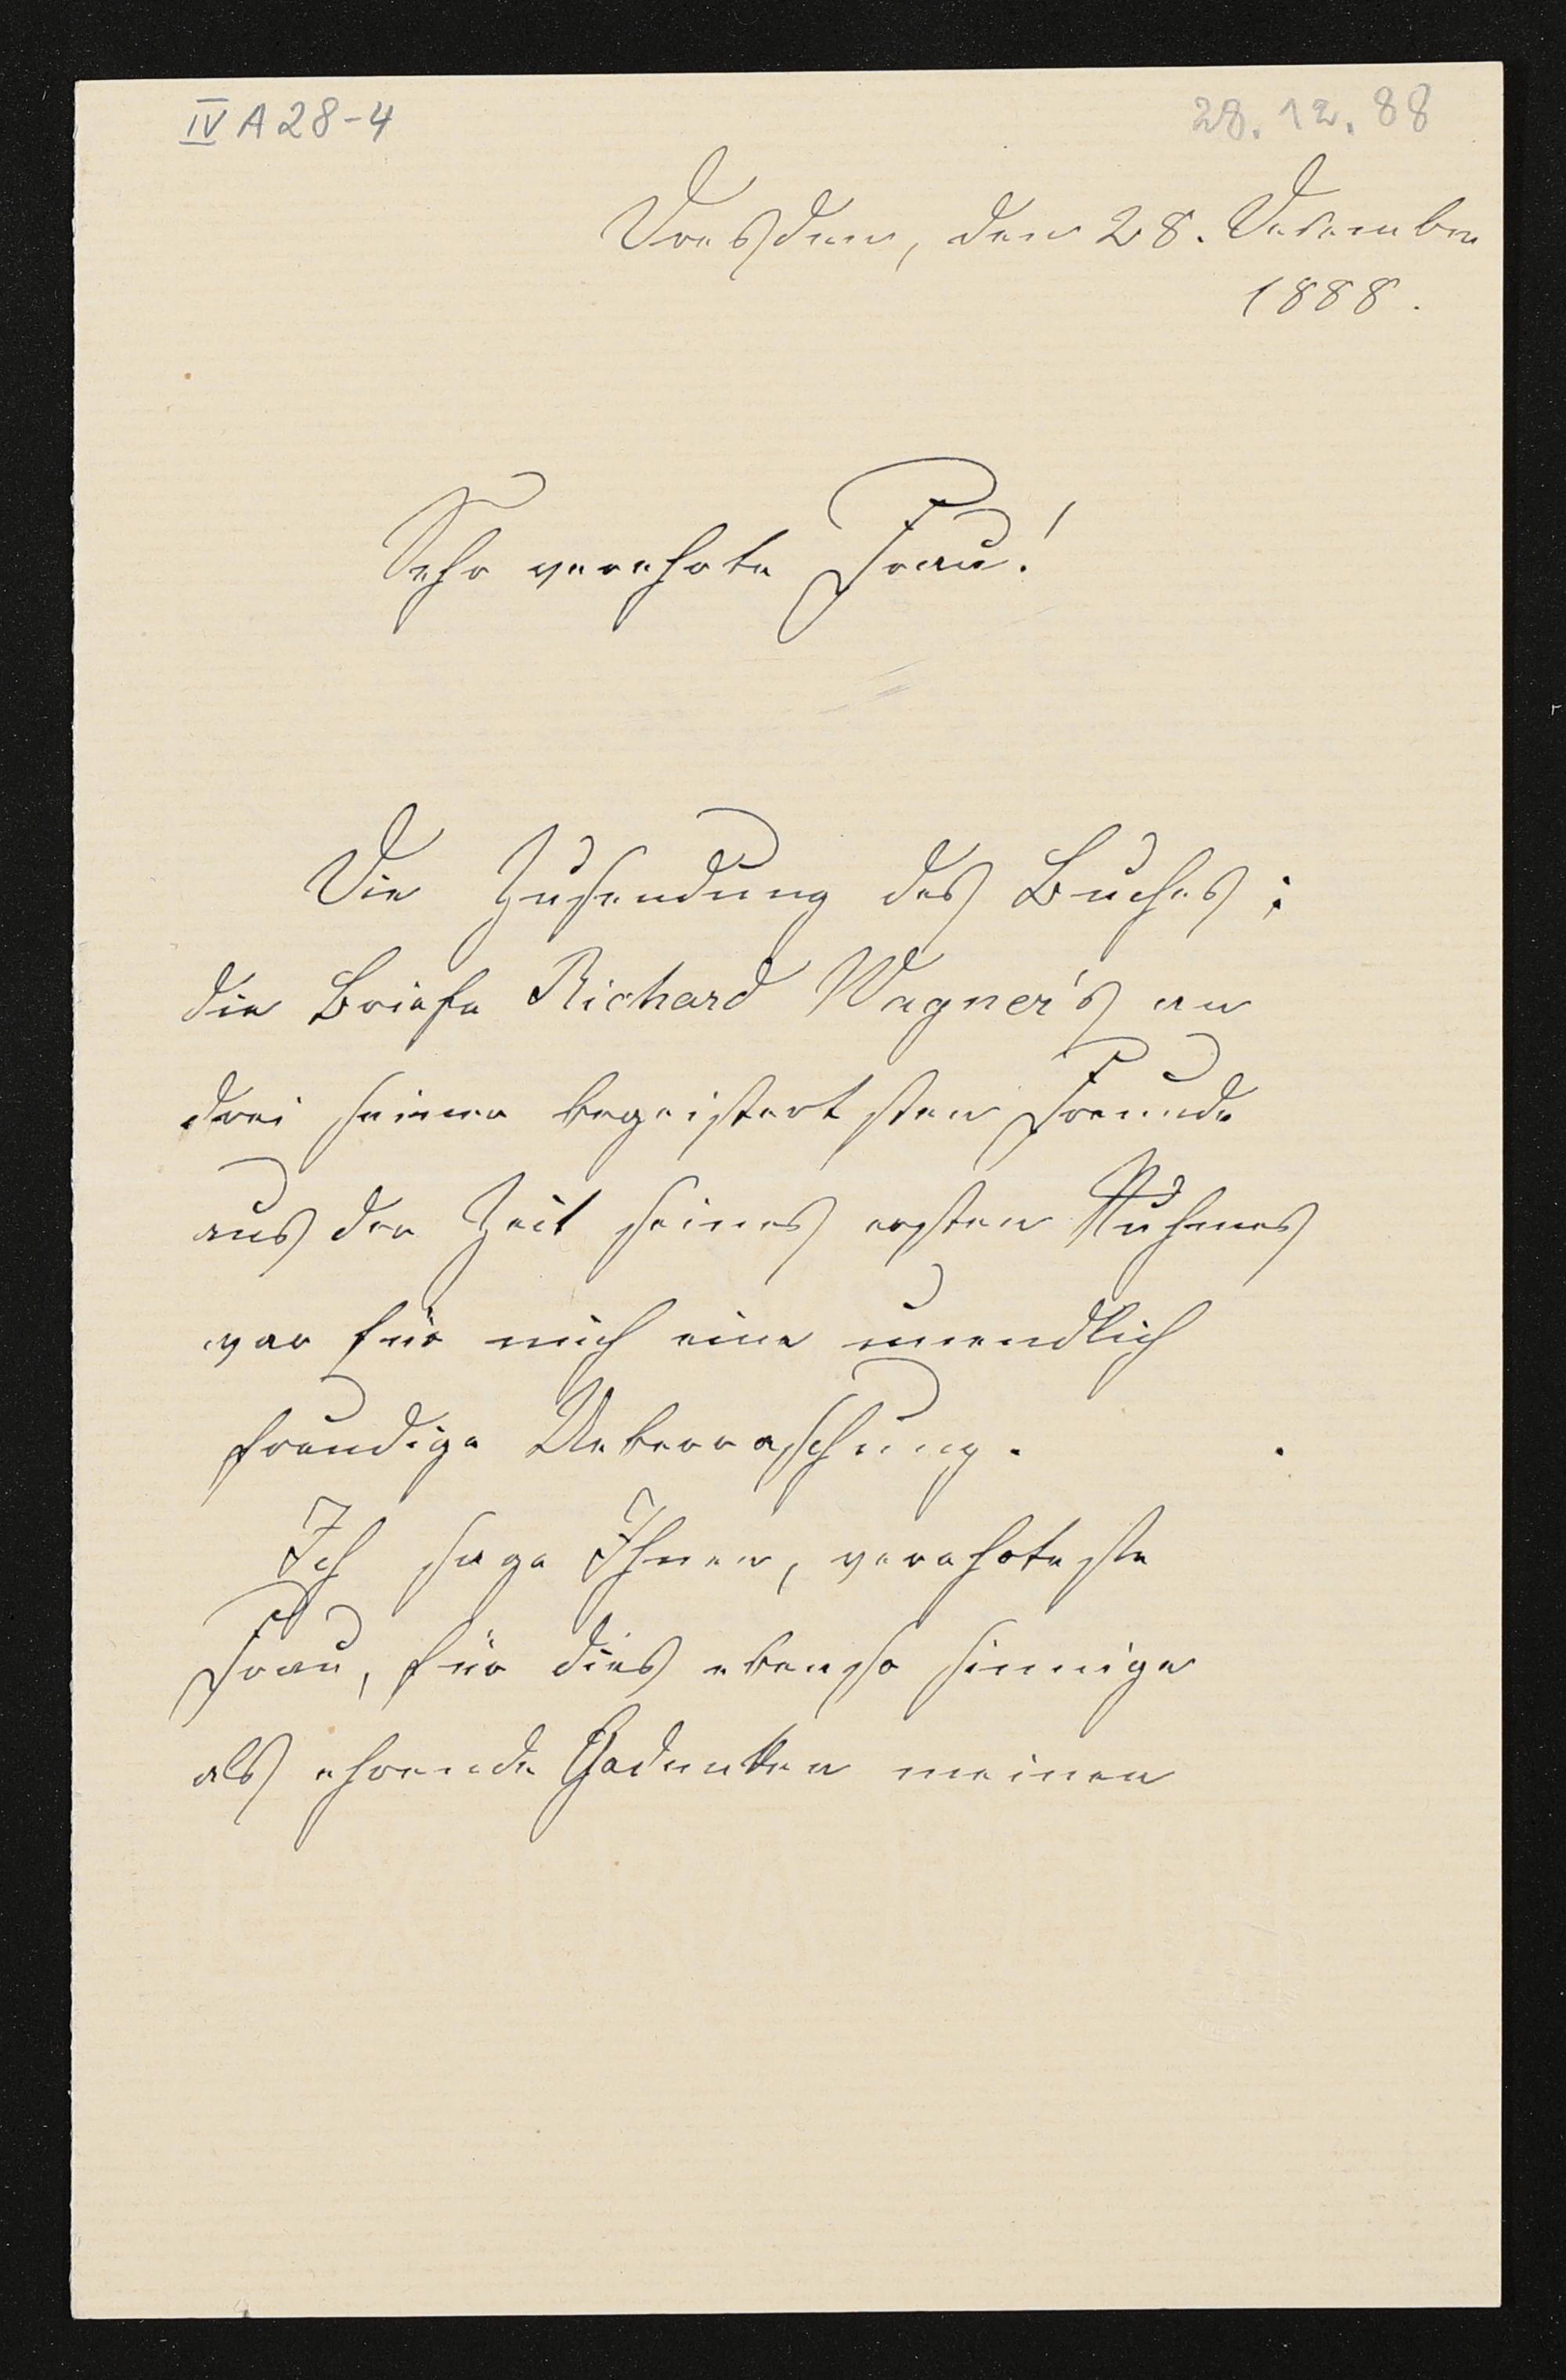 IV A 28-4
28. 12. 88
Dresden, den 28. Dezember
1888.
Sehr verehrte Frau!
Die Zusendung des Buches:
die Briefe Richard Wagner's an
drei seiner begeistertsten Freunde
aus der Zeit seines ersten Ruhmes
war für mich eine unendlich
freudige Ueberraschung.
Ich sage Ihnen, verehrteste
Frau, für dies ebenso sinnige
als ehrende Gedenken meiner